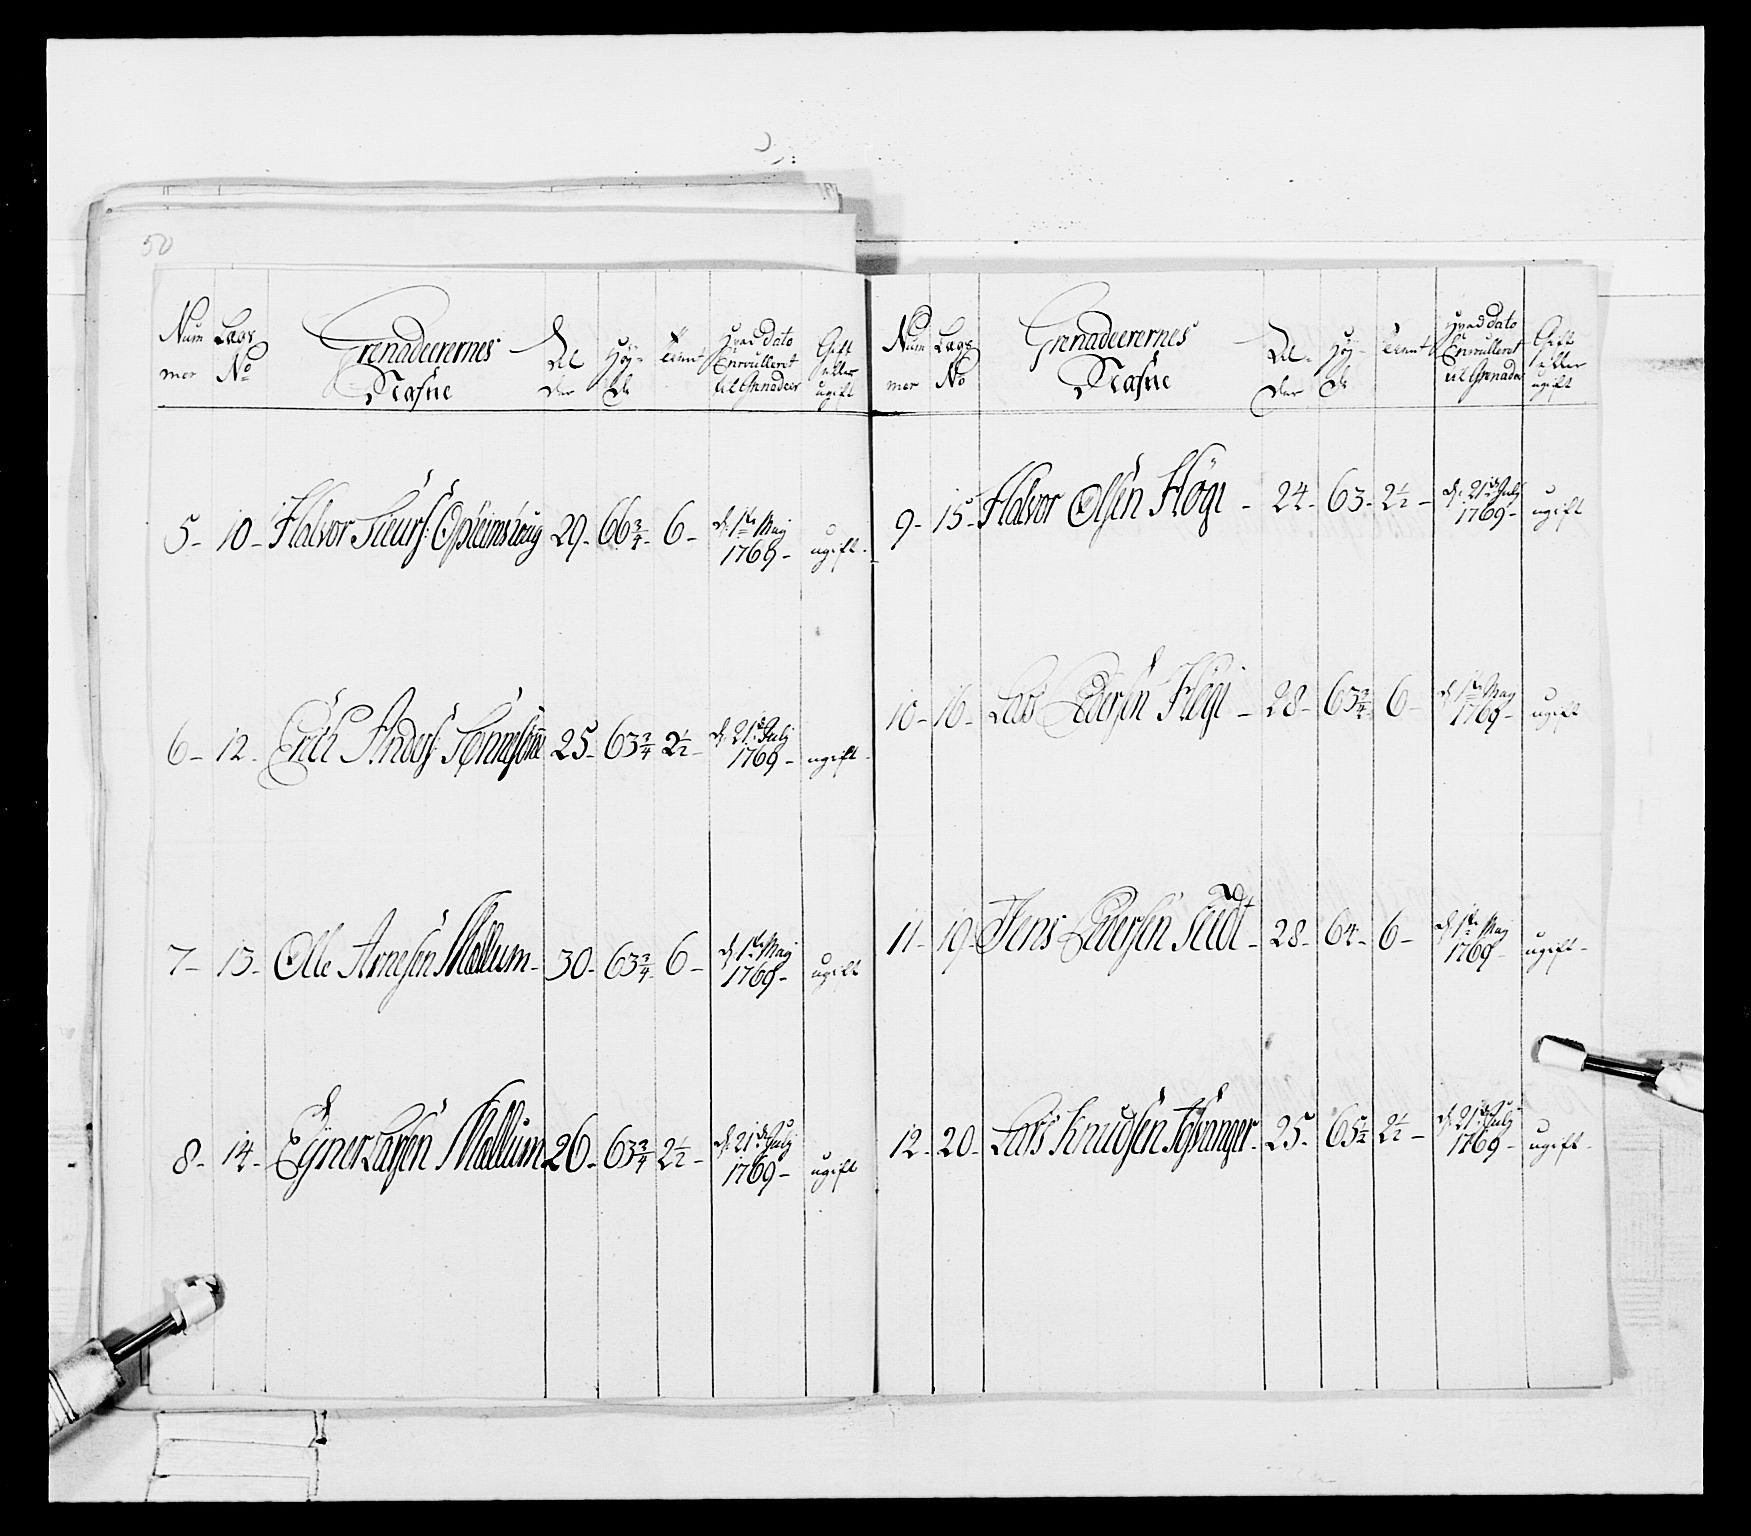 50
Num mer | Lægs No | Grenadeerernes Nafne | Al der | Høy- de | Tient | Hvad dato Enrulleret til Grenadeer | Gift eller ugift
5- | 10- | Halvor Siurs: | 29- | 66 3/4- | 6- | d: 1te Maj 1769- | ugift-
6- | 12- | Erich Anders: | 25- | 63 3/4 | 2 1/2- | d: 21de Julj 1769- | ugift-
7- | 13- | Olle Arnesen Mællum- | 30- | 63 3/4- | 6- | d: 1te Maj 1769- | ugift
8- | 14- | Ejner Larsen Mællum | 26- | 63 3/4 | 2 1/2- | d: 21de Julj 1769- | ugift
Num mer | Lægs No | Grenadeerernes Nafne | Al- der | Høy- de | Tient | Hvad dato Enrulleret til Grenadeer | Gift eller ugift
9- | 15- | Halvor Olsen Høgi- | 24- | 63- | 2 1/2- | d: 21de Julj 1769- | ugift
10- | 16- | Lars Pedersen Høgi- | 28- | 63 3/4 | 6- | d: 1te Maj 1769- | ugift
11- | 19- | Jens Pedersen | 28- | 64- | 6- | d: 1te Maj 1769- | ugift-
12- | 20- | Lars Knudsen | 25- | 65 1/2 | 2 1/2- | d: 21de Julj 1769- | ugift-